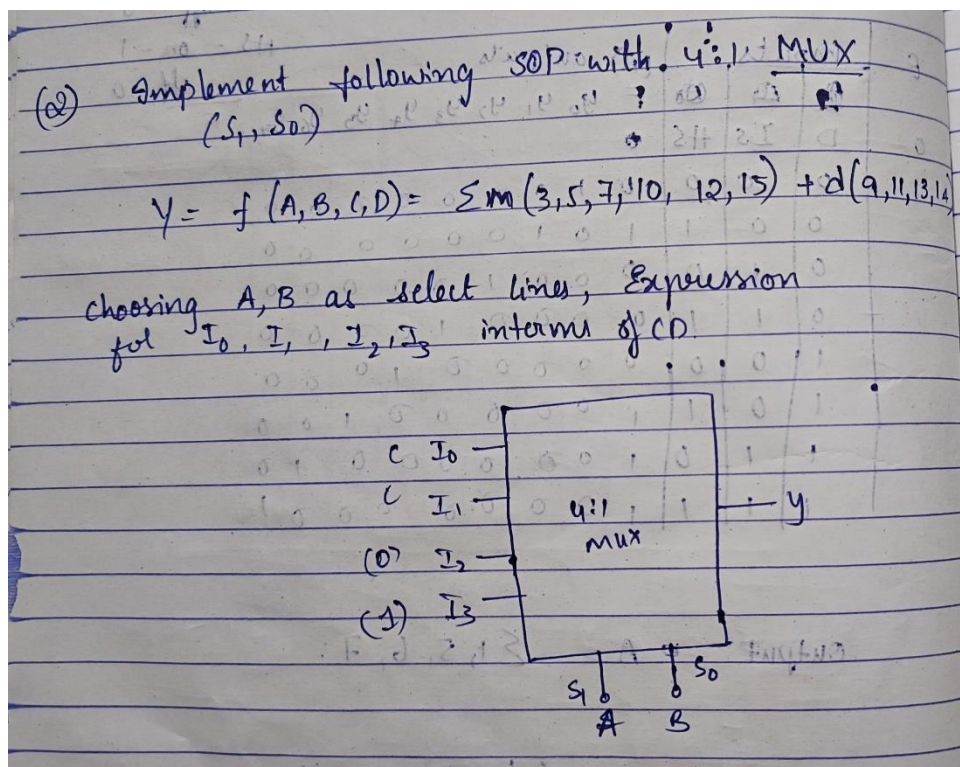 (Q) Implement following SOP with 4:1 MUX
(S1, S0)
Y = f (A, B, C, D) = Σm (3, 5, 7, 10, 12, 15) + d(9, 11, 13, 14)
choosing A, B as select lines, Expression
for I0, I1, I2, I3 interms of CD.
C I0
C I1
4:1
MUX
Y
(0) I2
(1) I3
S1 S0
A B